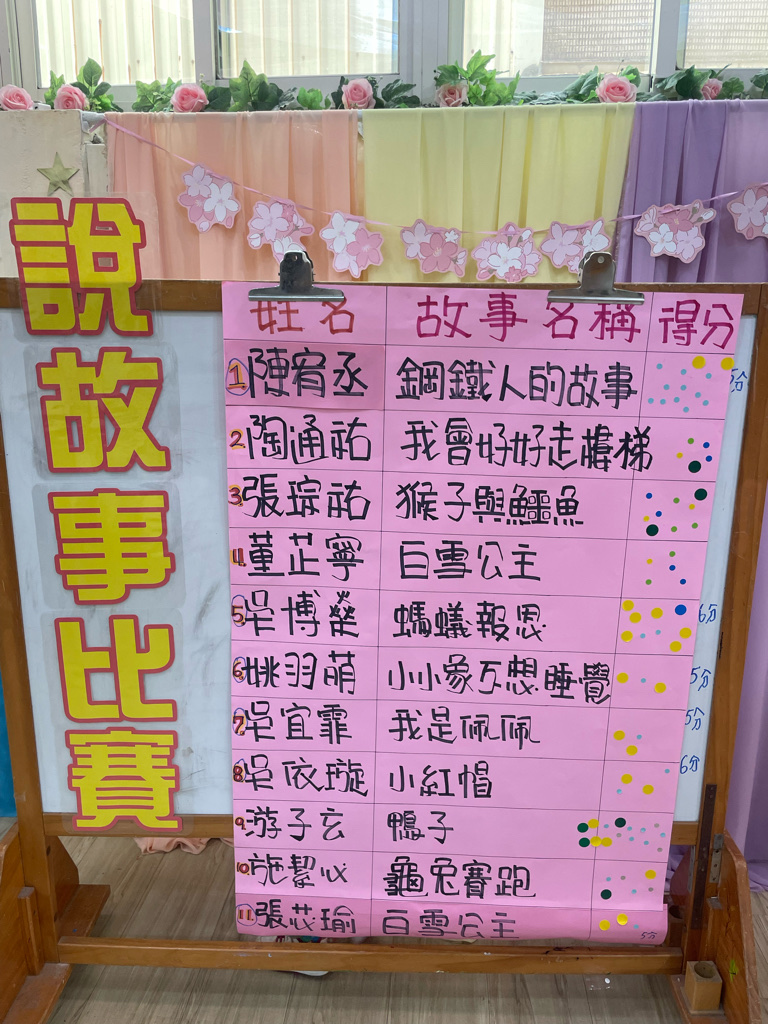 說故事比賽
姓名 故事名稱 得分
1 陳宥丞 鋼鐵人的故事 5分
2. 陶通祐 我會好好走樓梯
3. 張琮祐 猴子與鱷魚
4. 董芷寧 白雪公主
5. 吳博燊 螞蟻報恩 6分
6. 姚羽萌 小小象不想睡覺 5分
7. 吳宜霏 我是佩佩 5分
8. 吳依璇 小紅帽 6分
9. 游子玄 鴨子
10. 施絜心 龜兔賽跑
11 張芯瑜 白雪公主 5分